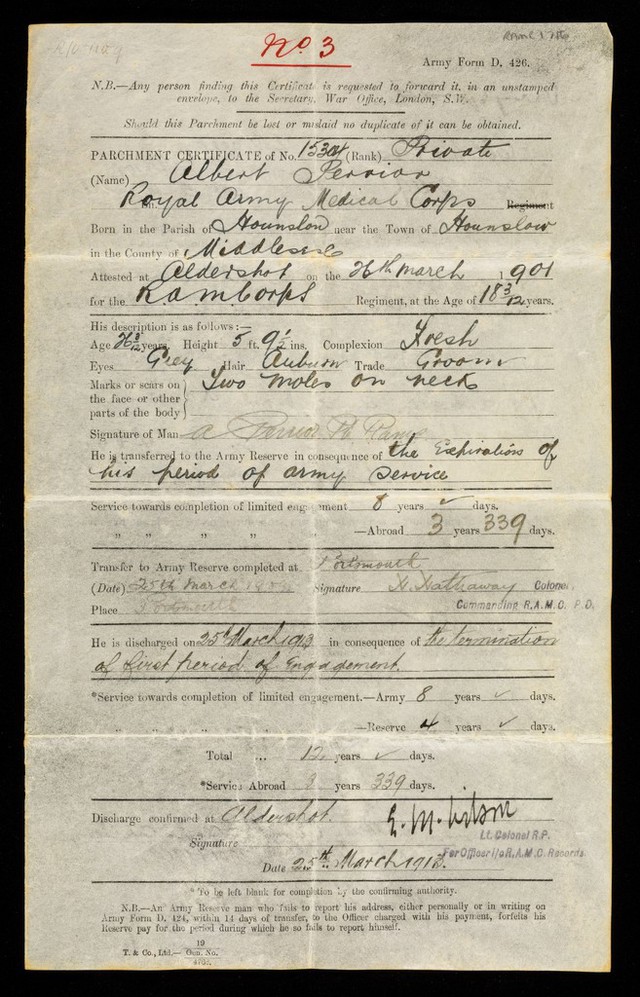 No 3
Army Form D. 426.
N.B.—Any person finding this Certificate is requested to forward it, in an unstamped
envelope, to the Secretary, War Office, London, S.W.
Should this Parchment be lost or mislaid no duplicate of it can be obtained.
PARCHMENT CERTIFICATE of No. (Rank) Private
(Name) Albert Perrior
Royal Army Medical Corps Regiment
Born in the Parish of Hounslow near the Town of Hounslow
in the County of Middlesex
Attested at Aldershot on the 26th March 1901
for the R.A.M. Corps Regiment, at the Age of 18 3/12 years.
His description is as follows:—
Age 26 3/12 years. Height 5 ft. 9½ ins. Complexion Fresh
Eyes Grey Hair Auburn Trade Groom
Marks or scars on Two moles on neck
the face or other
parts of the body
Signature of Man A Perrior
He is transferred to the Army Reserve in consequence of the Expiration of
his period of army service
Service towards completion of limited engagement 8 years ✓ days.
„ „ „ „ „ —Abroad 3 years 339 days.
Transfer to Army Reserve completed at Portsmouth
(Date) 25th March 1909 Signature H. Hathaway Colonel
Place Portsmouth Commanding R.A.M.C. P.D.
He is discharged on 25th March 1913 in consequence of the termination
of first period of Engagement.
*Service towards completion of limited engagement.—Army 8 years ✓ days.
„ „ „ „ —Reserve 4 years ✓ days.
Total ... 12 years ✓ days.
*Service Abroad 3 years 339 days.
Discharge confirmed at Aldershot
Signature E. M. Wilson
Lt. Colonel R.P.
For Officer i/c R.A.M.C. Records.
Date 25th March 1913.
*To be left blank for completion by the confirming authority.
N.B.—An Army Reserve man who fails to report his address, either personally or in writing on
Army Form D. 424, within 14 days of transfer, to the Officer charged with his payment, forfeits his
Reserve pay for the period during which he so fails to report himself.
T. & Co., Ltd.—